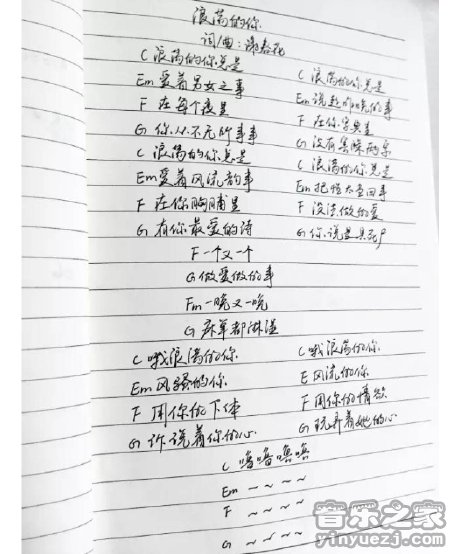 浪荡的你
词/曲:谢春花
C 浪荡的你总是
Em 爱着男女之事
F 在每个夜里
G 你从不无所事事
C 浪荡的你总是
Em 爱着风流韵事
F 在你胸脯里
G 有你最爱的诗
C 浪荡的你总是
Em 说起那晚的事
F 在你字典里
G 没有羞臊两字
C 浪荡的你总是
Em 把性太当回事
F 没法做的爱
G 你说是具死尸
F 一个又一个
G 做爱做的事
Fm 一晚又一晚
G 床单都淋湿
C 哦浪荡的你
Em 风骚的你
F 用你的下体
G 诉说着你的心
C 哦浪荡的你
E 风流的你
F 用你的情欲
G 玩弄着她的心
C 噜噜噜噜
Em ~ ~ ~ ~
F ~ ~ ~ ~
G ~ ~ ~ ~
音乐之家
yinyuezj.com